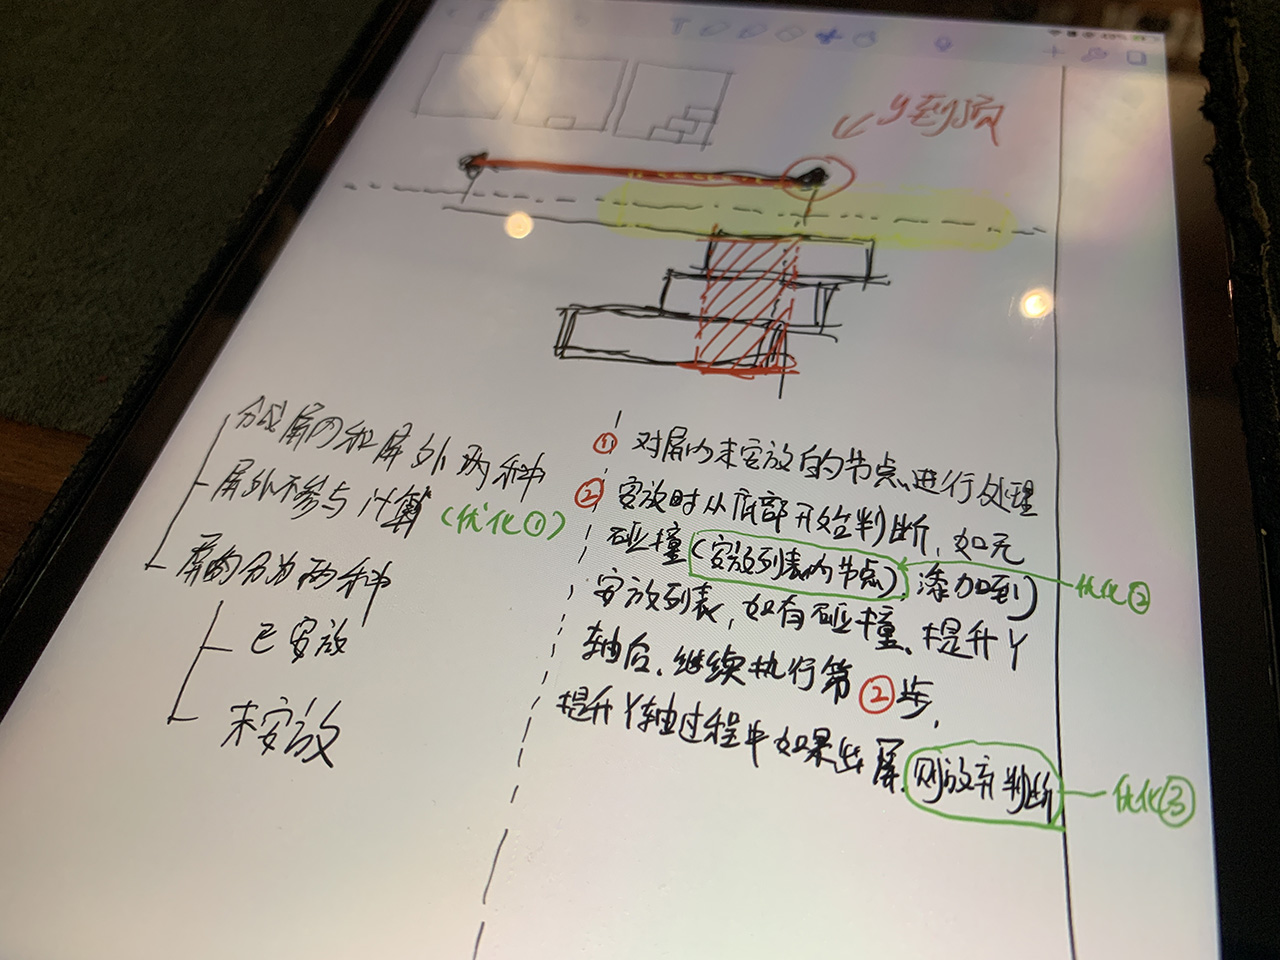 y到顶
分成屏内和屏外两种
屏外不参与计算(优化①)
屏内分为两种
已安放
未安放
① 对屏内未安放的节点进行处理
② 安放时从底部开始判断,如无
碰撞(安放列表内节点),添加到
安放列表,如有碰撞、提升Y
轴后,继续执行第②步,
提升Y轴过程中如果出屏,则放弃判断
优化②
优化③